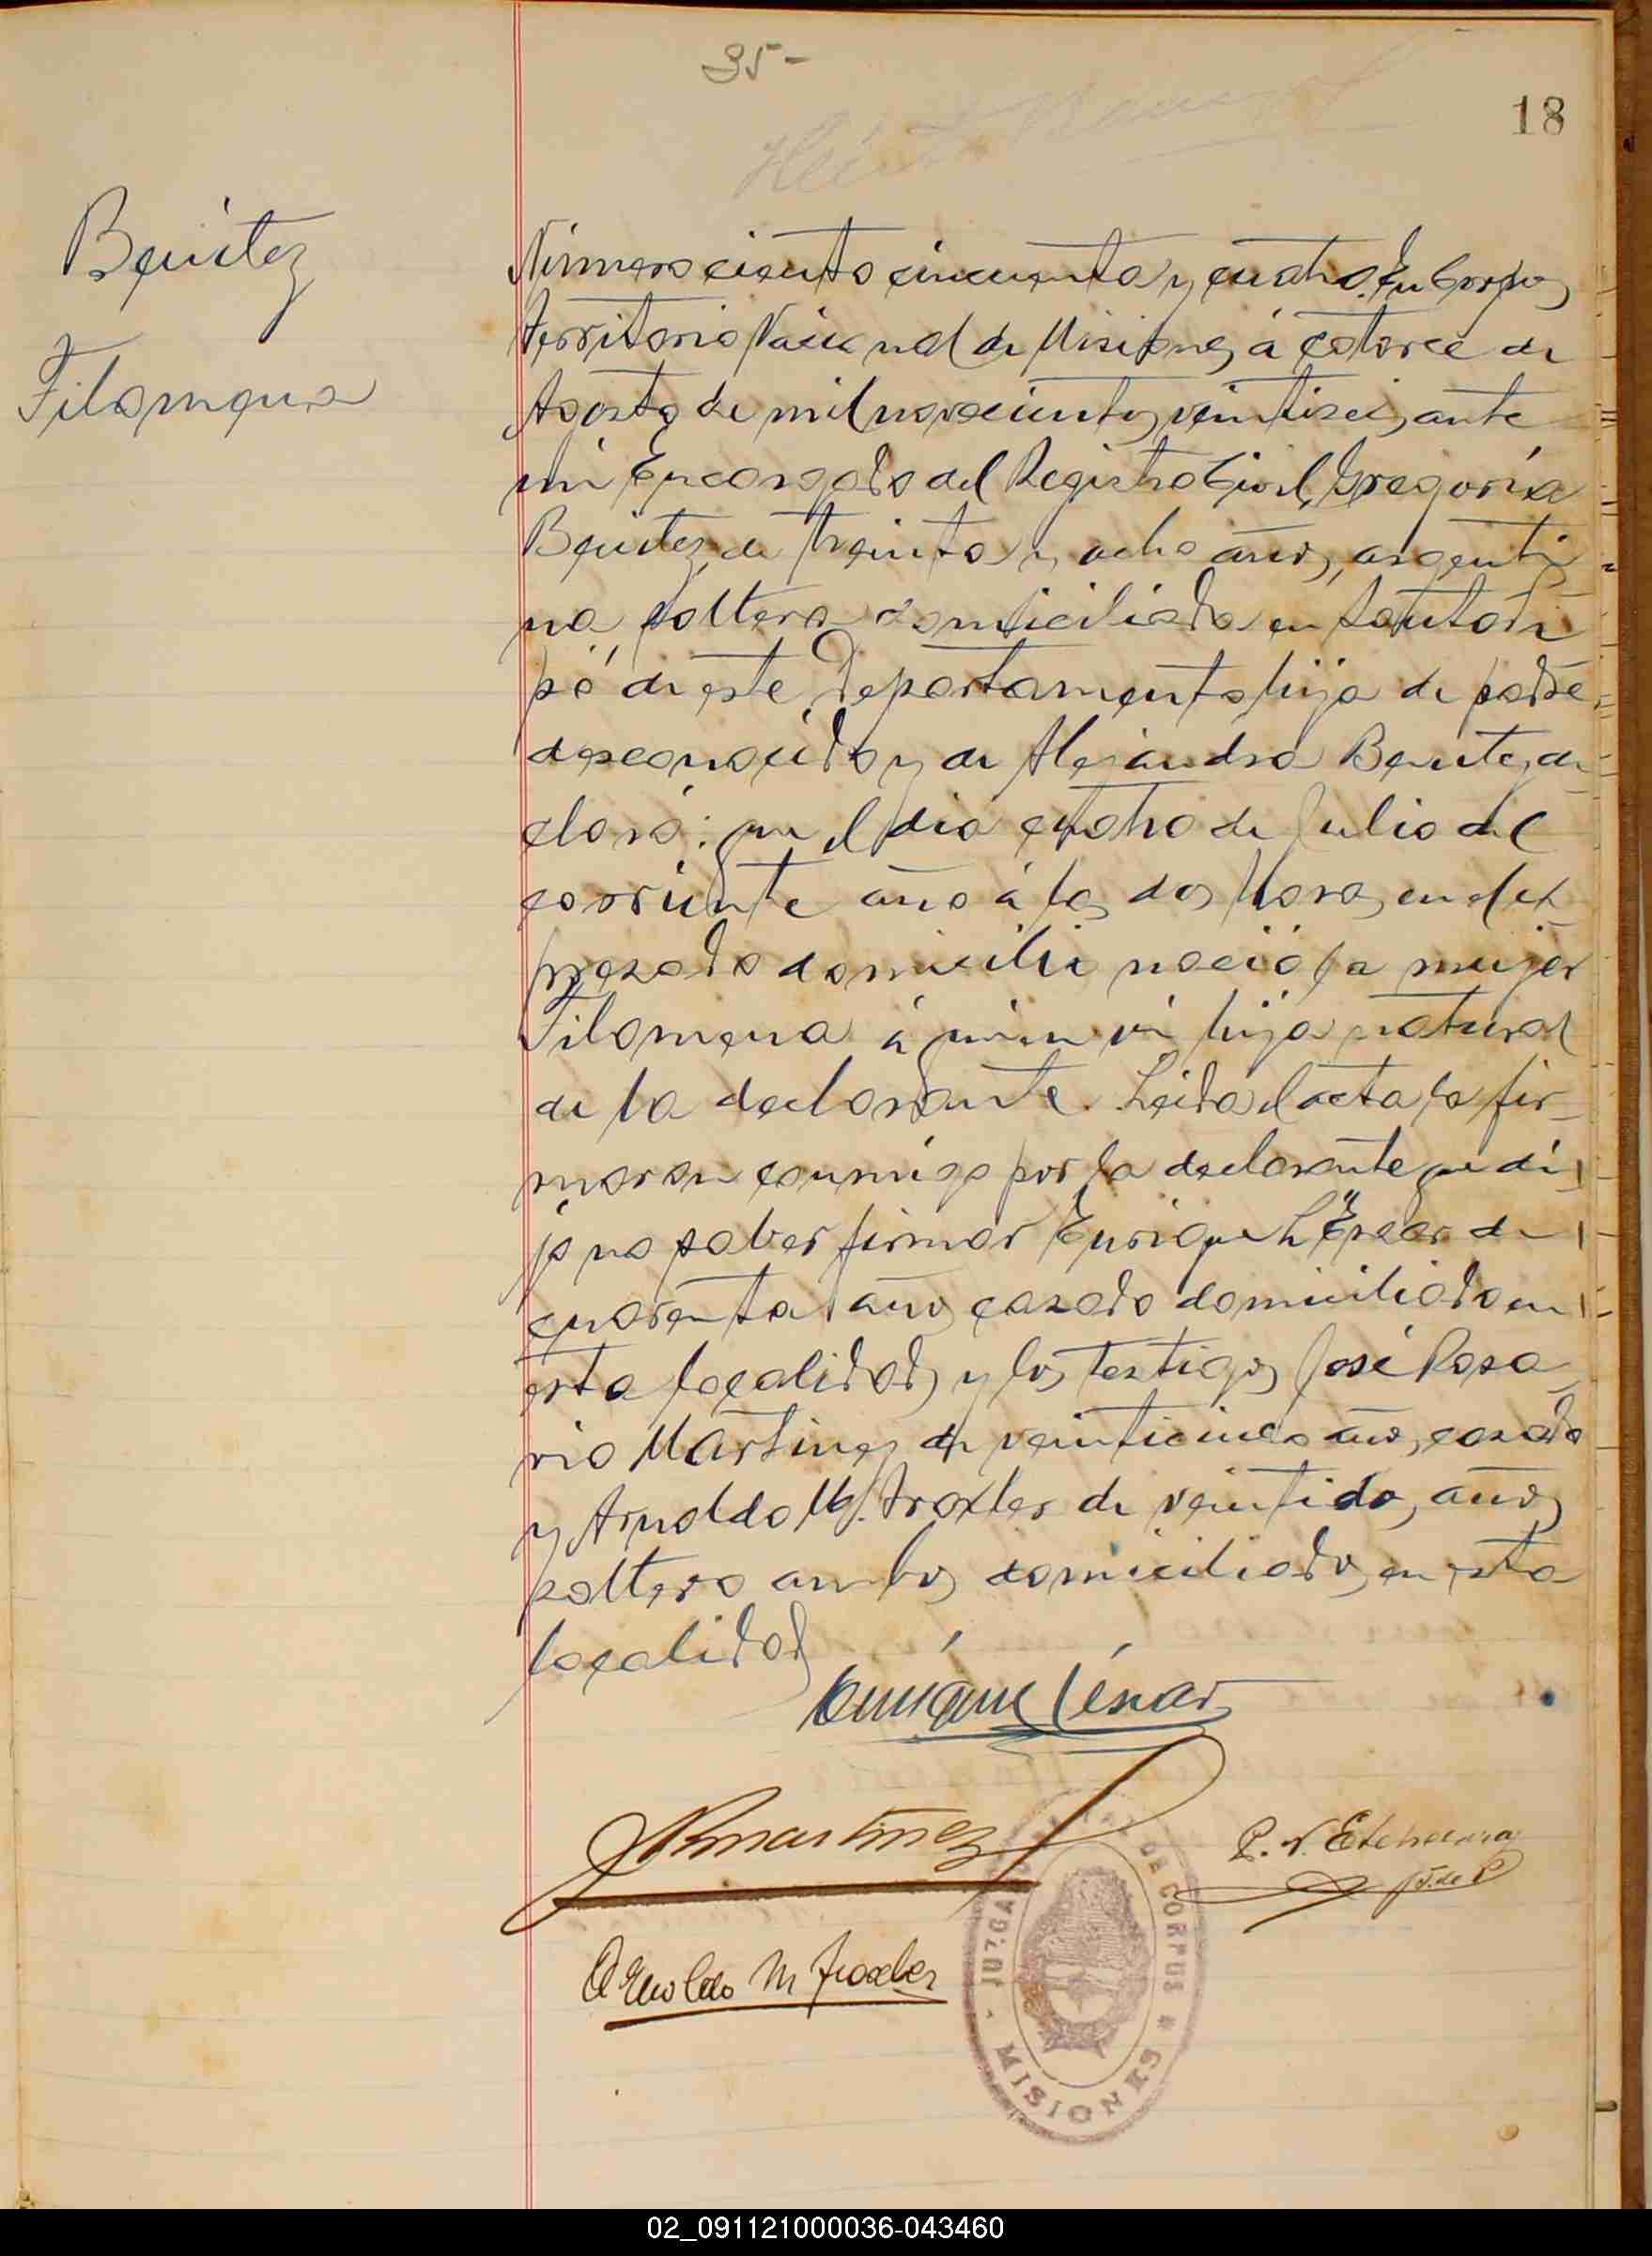 35-
18
Benitez
Filomena
Número ciento cincuenta y cuatro. En Corpus
Territorio Nacional de Misiones, á catorce de
Agosto de mil novecientos veintiseis, ante
mi Encargado del Registro Civil, Gregoria
Benitez, de treinta y ocho años, argenti-
na soltera domiciliada en
pó de este Departamento hija de padre
desconocido y de Alejandra Benitez, de-
claró: que el dia cuatro de Julio del
corriente año á las dos horas, en el ex-
presado domicilio nació la mujer
Filomena á quien ví hija natural
de la declarante. Leida el acta la fir-
maron conmigo por la declarante que di-
jo no saber firmar Enrique L. de
cuarenta años casado domiciliado en
esta localidad, y los testigos José Rosa-
rio Martinez de veinticinco años, casado
y Arnoldo M. Troxler de veintidos, años
soltero ambos domiciliados, en esta
localidad
Enrique
JRMartinez
P. N. Etcheverria
J. de P
Arnoldo M Troxler
JUZGADO DE CORPUS * MISIONES
02_091121000036-043460